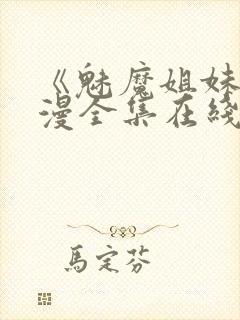 《魅魔姐妹
漫全集在綫
馬定芬